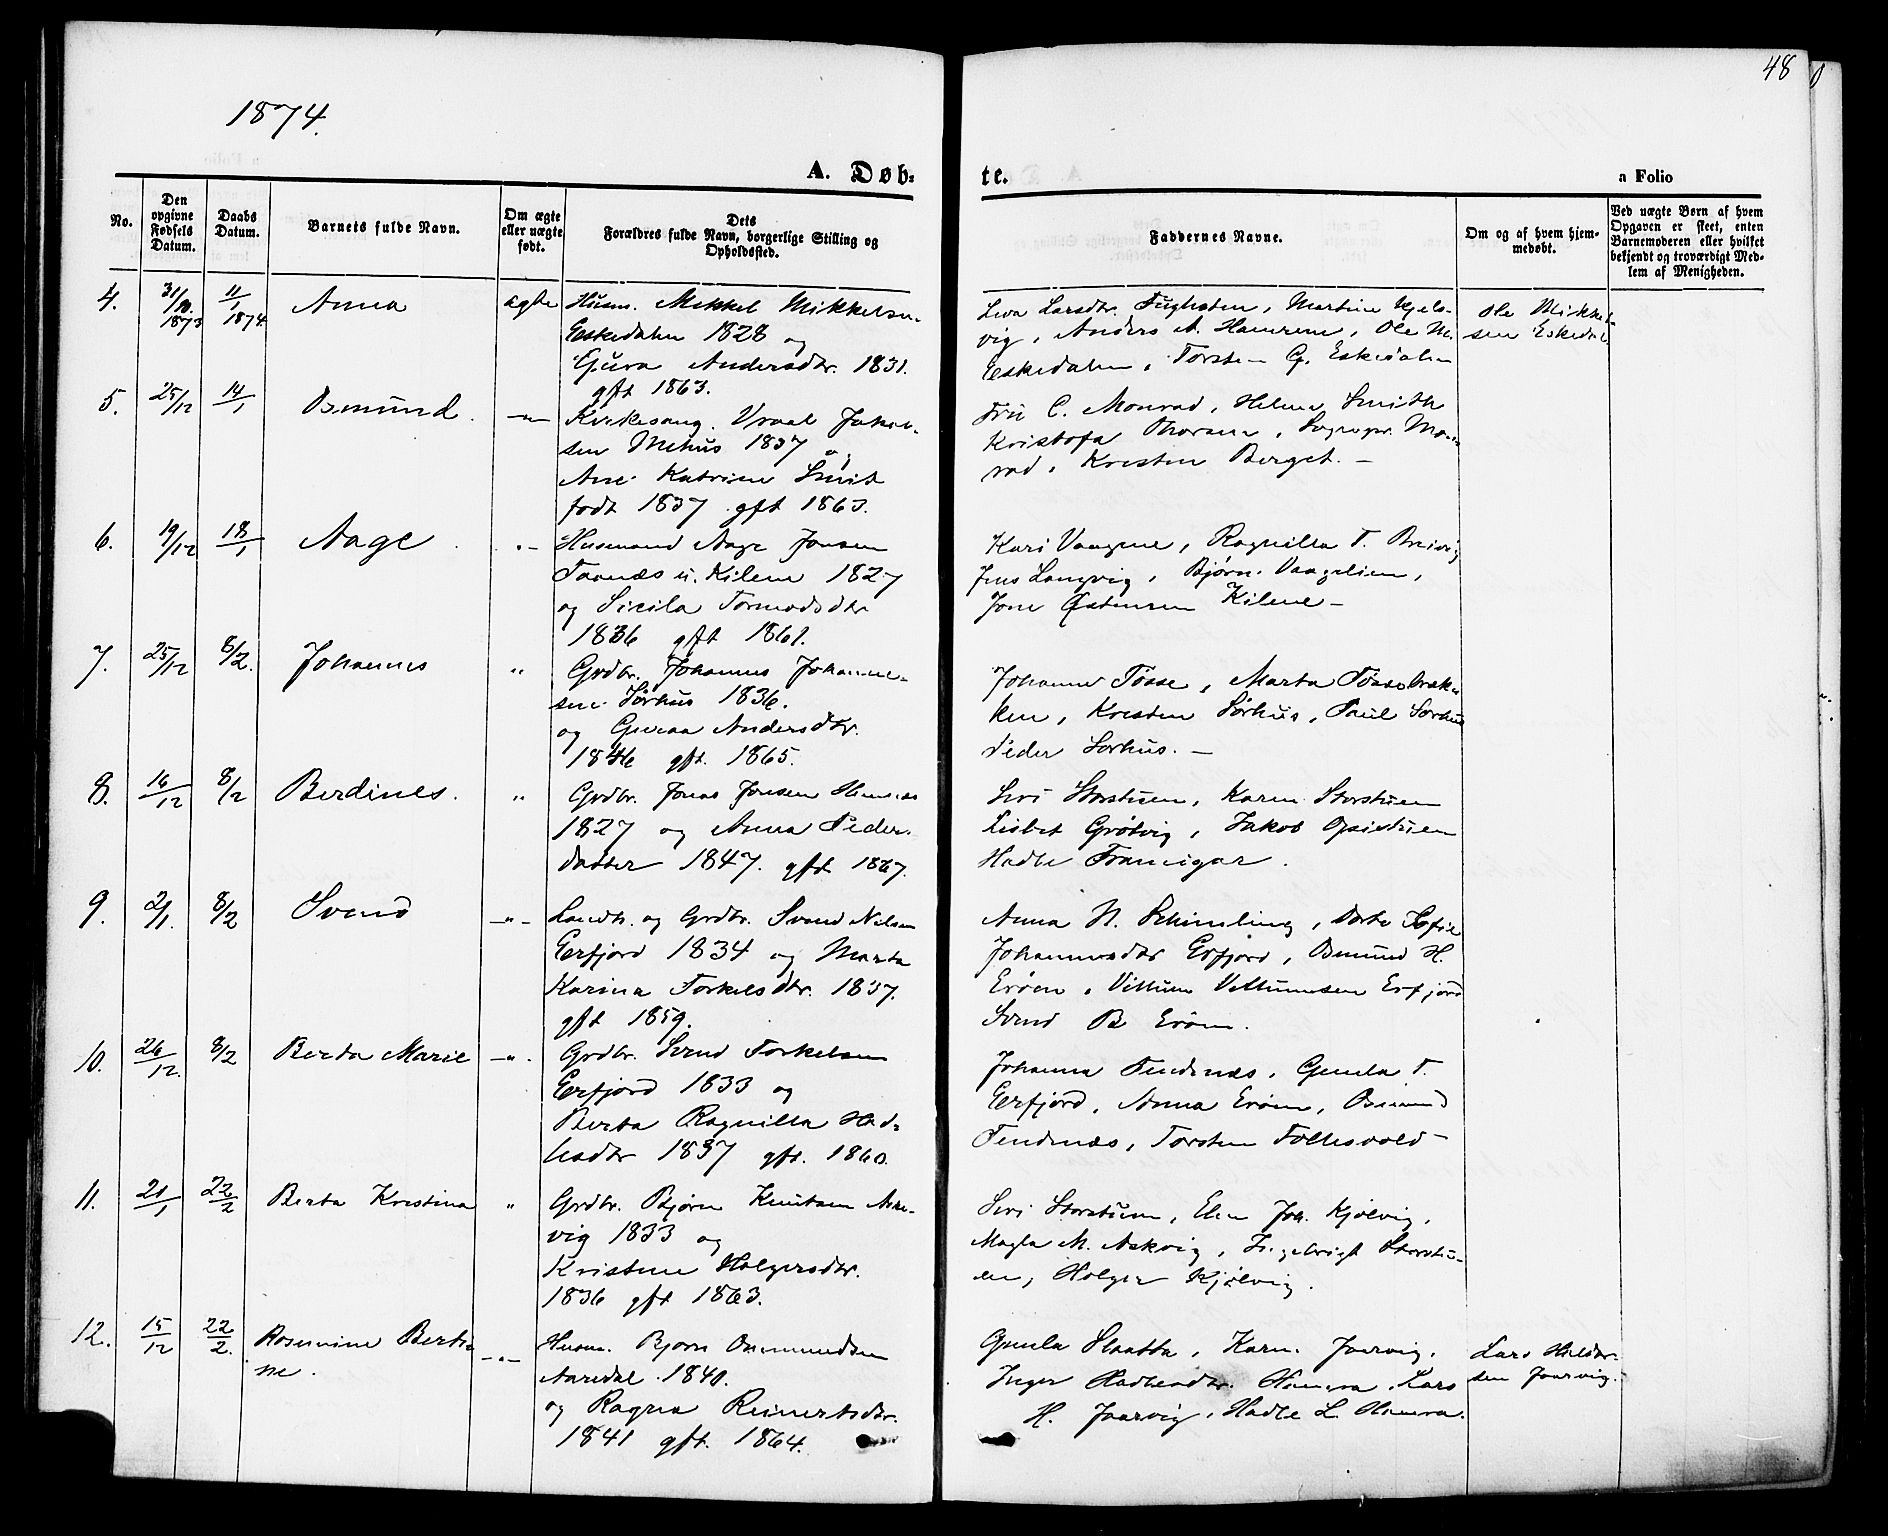 1874.
48
A. Døb-
te.
a Folio
No.
Den opgivne Fødsels Datum.
Daabs Datum.
Barnets fulde Navn.
Om ægte eller uægte født.
Dets Forældres fulde Navn, borgerlige Stilling og Opholdssted.
Faddernes Navne.
Om og af hvem hjemmedøbt.
Ved uægte Børn af hvem Opgaven er skeet, enten Barnemoderen eller hvilket bekjendt og troværdigt Medlem af Menigheden.
4. 31/10 1873 11/1 1874 Anna ægte Husm. Mikkel Mikkelsen
Eskedalen 1828 og
Gura Andersdtr. 1831.
gft 1863.
Siva Larsdtr. Fuglesten, Martine Kjels-
vig, Anders A. Hamrene, Ole M.
Eskedalen, Torsten G. Eskedalen
Ole Mikkel-
sen Eskedal
5. 25/12 14/1 Osmund. —"— Kirkesang. Vraal Jakob-
sen Mehus 1837 og
Ane Katrine Smit
født 1837 gft 1863.
Fru C. Monrad, Helene Smith
Kristofa Thorsen, Sogнepr. Mon-
rad, Kristen Berget. —
6. 19/12 18/1 Aage "— Husmand Aage Jonsen
Taanæs u. Kilene 1827
og Sicila Tormodsdtr
1836 gft 1861.
Kari Vaagene, Ragnilla T. Breivig
Jens Langvig, Bjørn Vaagelien,
Jone Østensen Kilene —
7. 25/12 8/2. Johannes " Grdbr. Johannes Johanne-
sen Sørhus 1836.
og Guroa Andersdtr.
1846 gft. 1865.
Johanne Tøsse, Marta Tøssebræk-
ken, Kristen Sørhus, Paul Sørhus
Peder Sørhus. —
8. 16/12 8/2 Berdines. " Grdbr. Jonas Jonsen Himenæs
1827 og Anna Peder-
datter 1847. gft 1867.
Siri Storstuen, Karen Storstuen
Lisbet Grøtvig, Jakob Opistuen
Hadle
9. 2/1. 8/2 Svend —"— Landh. og Grdbr. Svend Nilsen
Erfjord 1834 og Marta
Karina Torkelsdtr. 1837.
gft 1859.
Anna N. Schimling, Dorte Sofie
Johannesdtr Erfjord, Osmund H.
Erøen, Vettum Vettumsen Erfjord
Svend B Erøen.
10. 26/12. 8/2 Berta Marie —". Grdbr. Svend Torkelsen
Erfjord 1833 og
Berta Ragnilla Had-
lesdtr 1837 gft. 1860.
Johanna Tindenæs, Gunla T.
Erfjord, Anna Erøen, Osmund
Tindenæs, Torsten Folkesvold —
11. 21/1 22/2 Berta Kristina " Grdbr. Bjørn Knutsen Aske-
vig 1833 og
Kristine Holgersdtr.
1836 gft 1863.
Siri Storstuen, Elen Joh. Kjølvig,
Magla M. Askvig, Ingebrigt Storstu-
en, Holger Kjølvig.
12. 15/12 22/2. Rosemine Berti-
ne. —"— Husm. Bjørn Osmundsen
Aaredal 1840.
og Ragna Reinertsdtr.
1841 gft. 1864.
Gunla Slaatta, Karen Jaarvig,
Inger Hadlesdtr. Himera, Lars
H. Jaarvig, Hadle L. Himera.
Lars Heldor-
sen Jaarvig.